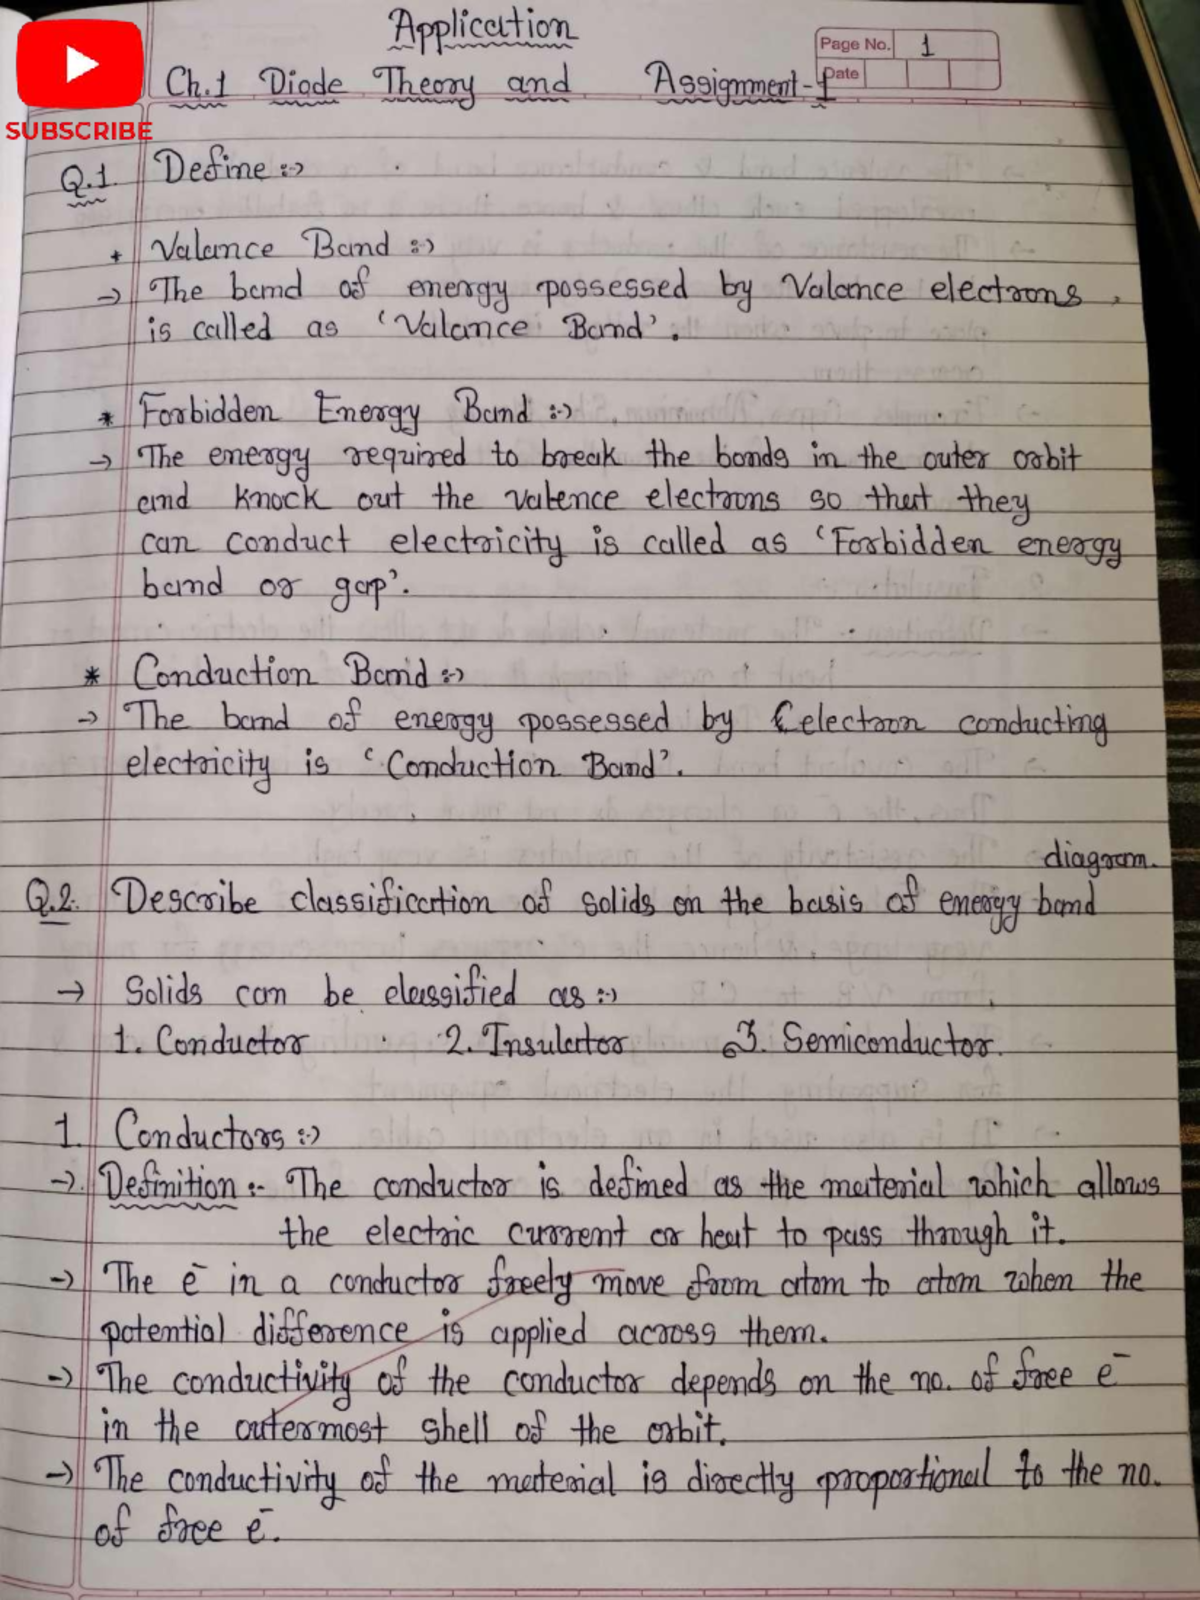 Application
Page No. 1
Ch.1 Diode Theory and Assignment-1
Date
SUBSCRIBE
Q.1 Define :-)
* Valance Band :-)
→ The band of energy possessed by Valance electrons,
is called as 'Valance Band'.
* Forbidden Energy Band :-)
→ The energy required to break the bonds in the outer orbit
and knock out the valence electrons so that they
can conduct electricity is called as 'Forbidden energy
band or gap'.
* Conduction Band :-)
→ The band of energy possessed by electron conducting
electricity is 'Conduction Band'.
diagram.
Q.2. Describe classification of solids on the basis of energy band
→ Solids can be classified as :-)
1. Conductor 2. Insulator 3. Semiconductor.
1. Conductors :-)
→ Definition :- The conductor is defined as the material which allows
the electric current or heat to pass through it.
→ The e⁻ in a conductor freely move from atom to atom when the
potential difference is applied across them.
→ The conductivity of the conductor depends on the no. of free e⁻
in the outermost shell of the orbit.
→ The conductivity of the material is directly proportional to the no.
of free e⁻.